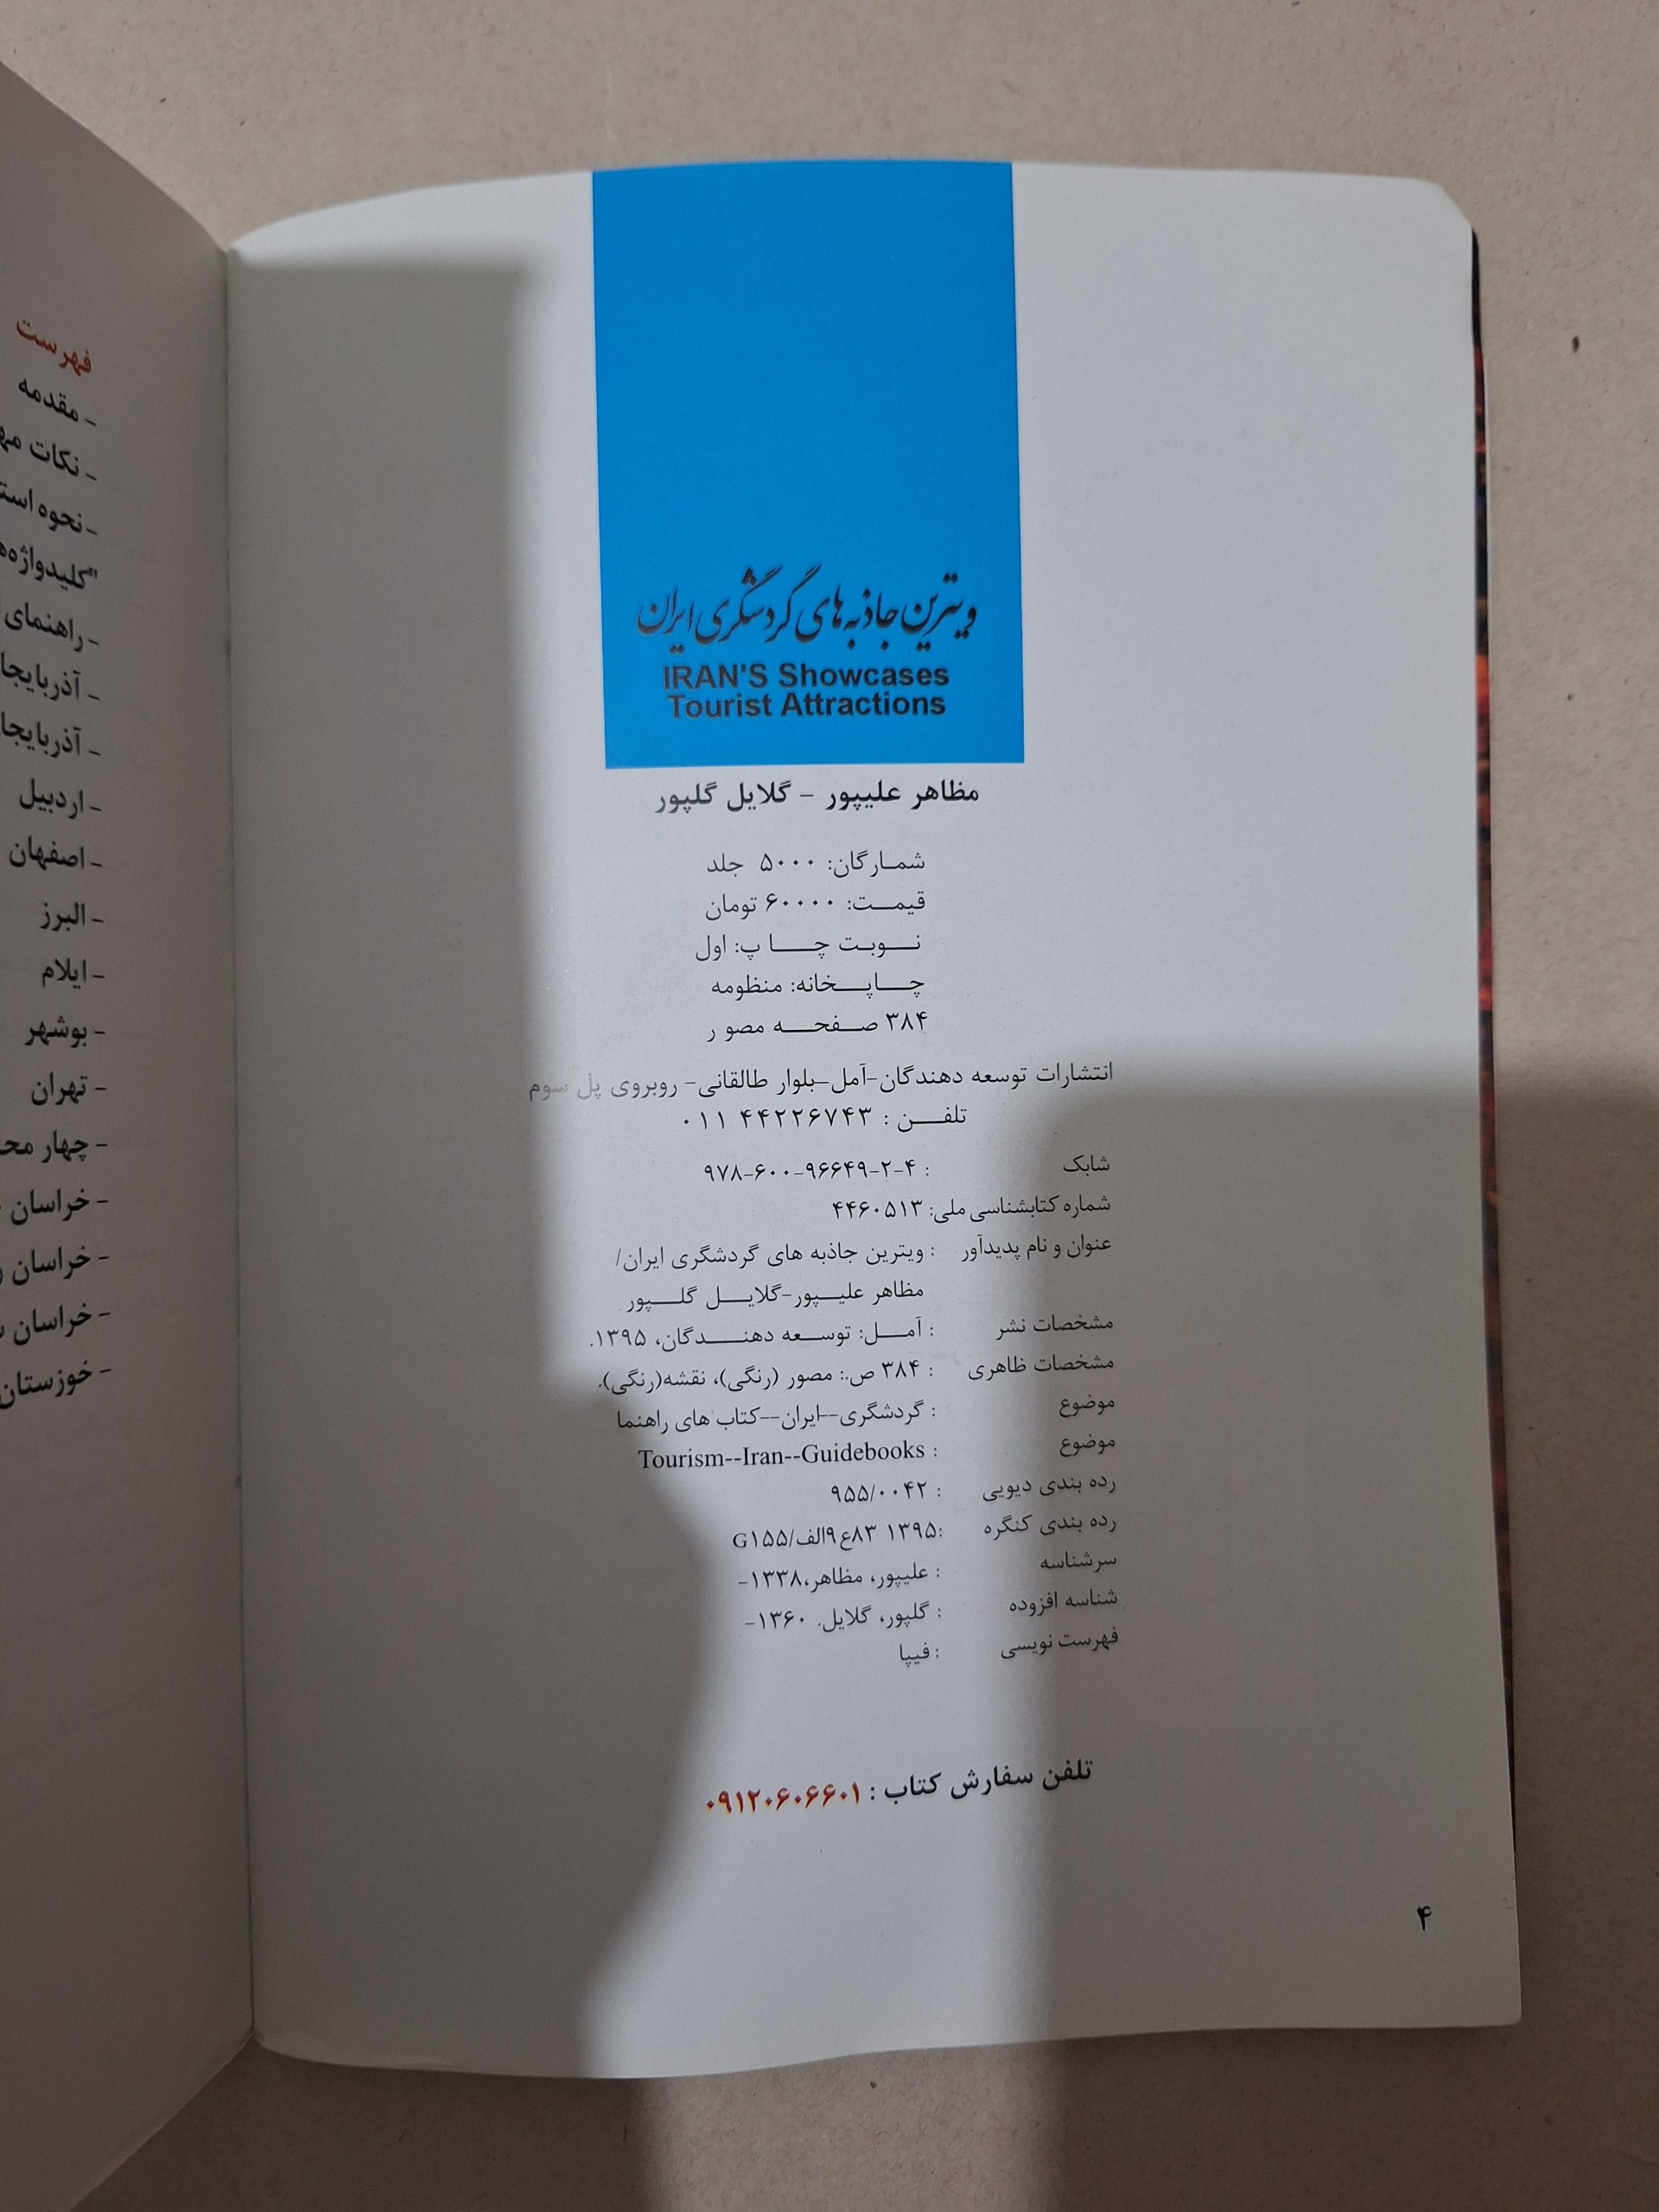 ویترین جاذبه های گردشگری ایران
IRAN'S Showcases
Tourist Attractions
مظاهر علیپور - گلایل گلپور
شمـارگان: ۵۰۰۰ جلد
قیمـــت: ۶۰۰۰۰ تومان
نـــوبـت چـــا پ: اول
چـــاپـــخانه: منظومه
۳۸۴ صـفحـــه مصو ر
انتشارات توسعه دهندگان-آمل-بلوار طالقانی- روبروی پل سوم
تلفـــن : ۴۴۲۲۶۷۴۳ ۰۱۱
شابک : ۹۷۸-۶۰۰-۹۶۶۴۹-۲-۴
شماره کتابشناسی ملی: ۴۴۶۰۵۱۳
عنوان و نام پدیدآور : ویترین جاذبه های گردشگری ایران/
مظاهر علیـپور-گلایـــل گلـــپور
مشخصات نشر : آمـــل: توســعه دهنـــدگان، ۱۳۹۵.
مشخصات ظاهری : ۳۸۴ ص.: مصور (رنگی)، نقشه(رنگی).
موضوع : گردشگری--ایران--کتاب های راهنما
موضوع : Tourism--Iran--Guidebooks
رده بندی دیویی : ۹۵۵/۰۰۴۲
رده بندی کنگره :۱۳۹۵ ۸۳ع۹الف/G۱۵۵
سرشناسه : علیپور، مظاهر،۱۳۳۸-
شناسه افزوده : گلپور، گلایل. ۱۳۶۰-
فهرست نویسی : فیپا
تلفن سفارش کتاب : ۰۹۱۲۰۶۰۶۶۰۱
۴
فهرست
- مقدمه
- نکات
- نحوه
"کلیدواژه
- راهنمای
-
-
- اردبیل
- اصفهان
- البرز
- ایلام
- بوشهر
- تهران
- چهار
- خراسان
- خراسان
- خراسان
- خوزستان